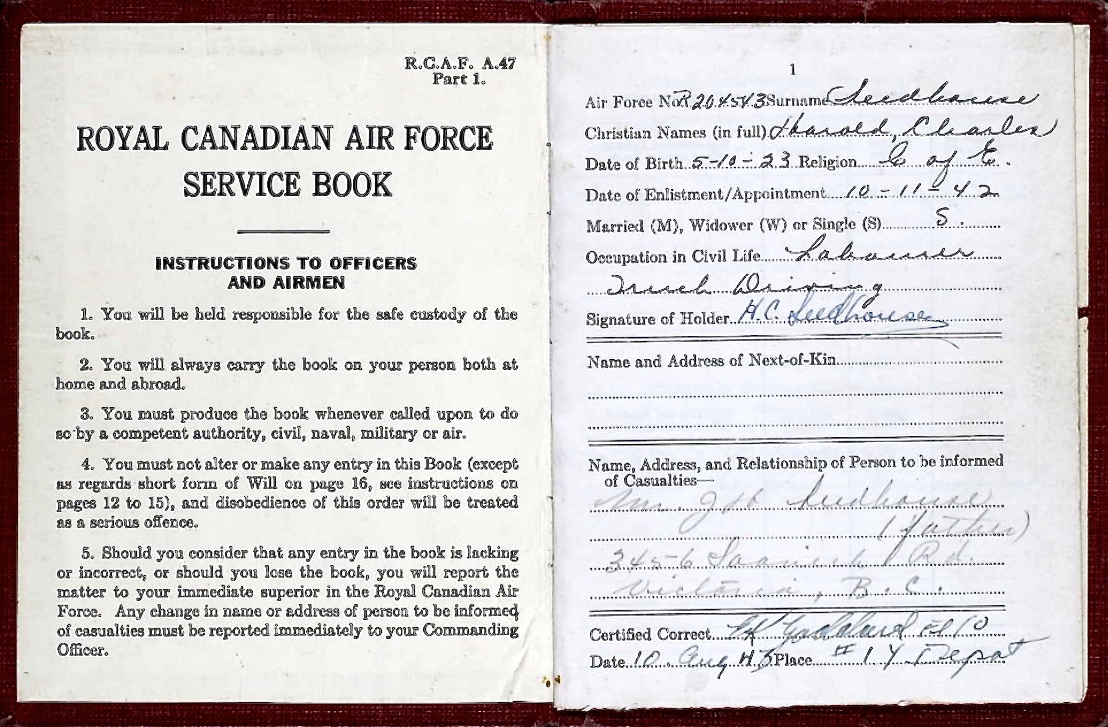 R.C.A.F. A.47
Part 1.
ROYAL CANADIAN AIR FORCE
SERVICE BOOK
INSTRUCTIONS TO OFFICERS
AND AIRMEN
1. You will be held responsible for the safe custody of the
book.
2. You will always carry the book on your person both at
home and abroad.
3. You must produce the book whenever called upon to do
so by a competent authority, civil, naval, military or air.
4. You must not alter or make any entry in this Book (except
as regards short form of Will on page 16, see instructions on
pages 12 to 15), and disobedience of this order will be treated
as a serious offence.
5. Should you consider that any entry in the book is lacking
or incorrect, or should you lose the book, you will report the
matter to your immediate superior in the Royal Canadian Air
Force. Any change in name or address of person to be informed
of casualties must be reported immediately to your Commanding
Officer.
1
Air Force No. R204543 Surname Seedhouse
Christian Names (in full) Harold, Charles
Date of Birth 5-10-23 Religion C of E.
Date of Enlistment/Appointment 10-11-42
Married (M), Widower (W) or Single (S) S.
Occupation in Civil Life Labourer
Truck Driving
Signature of Holder H.C. Seedhouse
Name and Address of Next-of-Kin
Name, Address, and Relationship of Person to be informed
of Casualties—
Mr. Seedhouse
(father)
3456 Saanich Rd.
Victoria, B.C.
Certified Correct Goddard F/O
Date 10 Aug 43 Place # 1 Y Depot